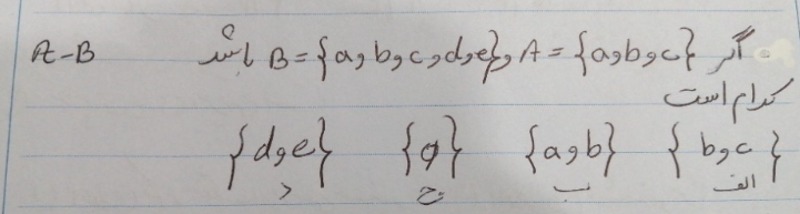 اگر A = {a و b و c} و B = {a و b و c و d و e} باشد A-B
کدام است
{b و c} {a و b} {φ} {d و e}
الف ب ج د